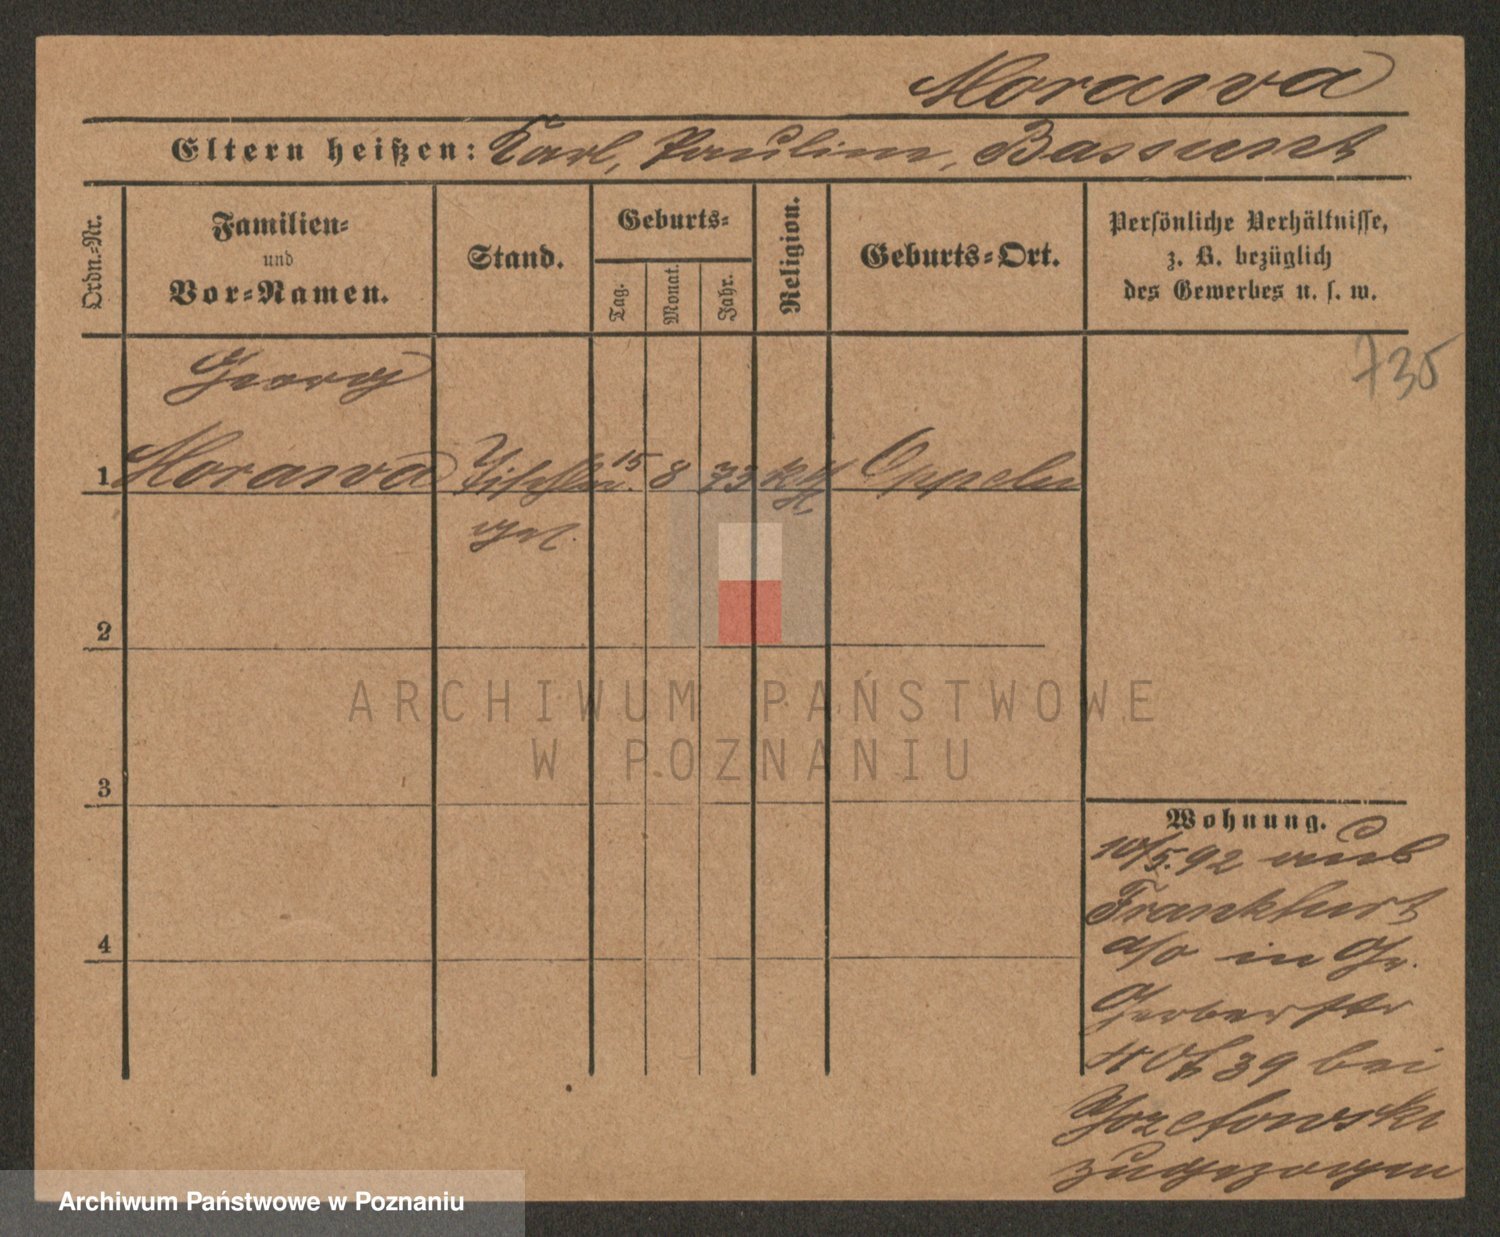 Morawa
Eltern heißen: Karl, Paulin, Bassunt
Ordn.-Nr.
Familien-
und
Vor-Namen.
Stand.
Geburts-
Tag.
Monat.
Jahr.
Religion.
Geburts-Ort.
Persönliche Verhältnisse,
z. B. bezüglich
des Gewerbes u. s. w.
735
Georg
1 Morawa Tischler 15 8 73 kth Oppeln
2
3
4
Wohnung.
10/5.92 aus
Frankfurt
a/o in Gr.
Gerberstr
39 bei
Jozefowski
zugezogen
ARCHIWUM PAŃSTWOWE
W POZNANIU
Archiwum Państwowe w Poznaniu